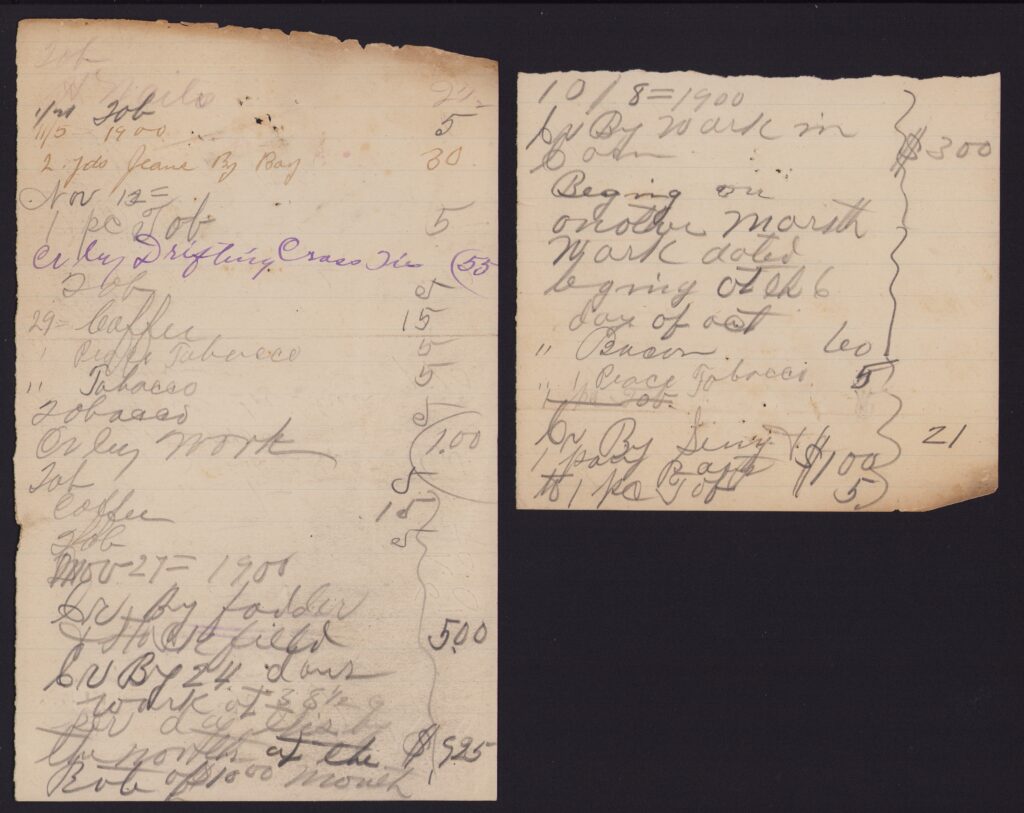 Tob
Nails
1/21 Tob 5
11/5 - 1900
2 yds Jeane By Boy 30
Nov 12 =
1 pc Tob 5
Cr by Drifting Cross Ties 55
Tob 5
29 = Coffee 15
1 Peace Tobacco 5
" Tobacco 5
Tobacco 5
Cr by Work 1.00
Tob 5
Coffee 15
Tob 5
Nov 27 = 1900
Cr By fodder
& Stalk field 500
Cr By 24 days
work at 38 1/2 c
per day this by
the month at the $ 925
Rob of $1000 Month
10 / 8 = 1900
Cr By Work in
Corn $300
Beging on
onother Month
Work dated
beging at th 6
day of oct
" Bacon 60
" 1 Peace Tobacco 5
1 pc Tob
Cr By
1 $100 21
1 pc Tob 5